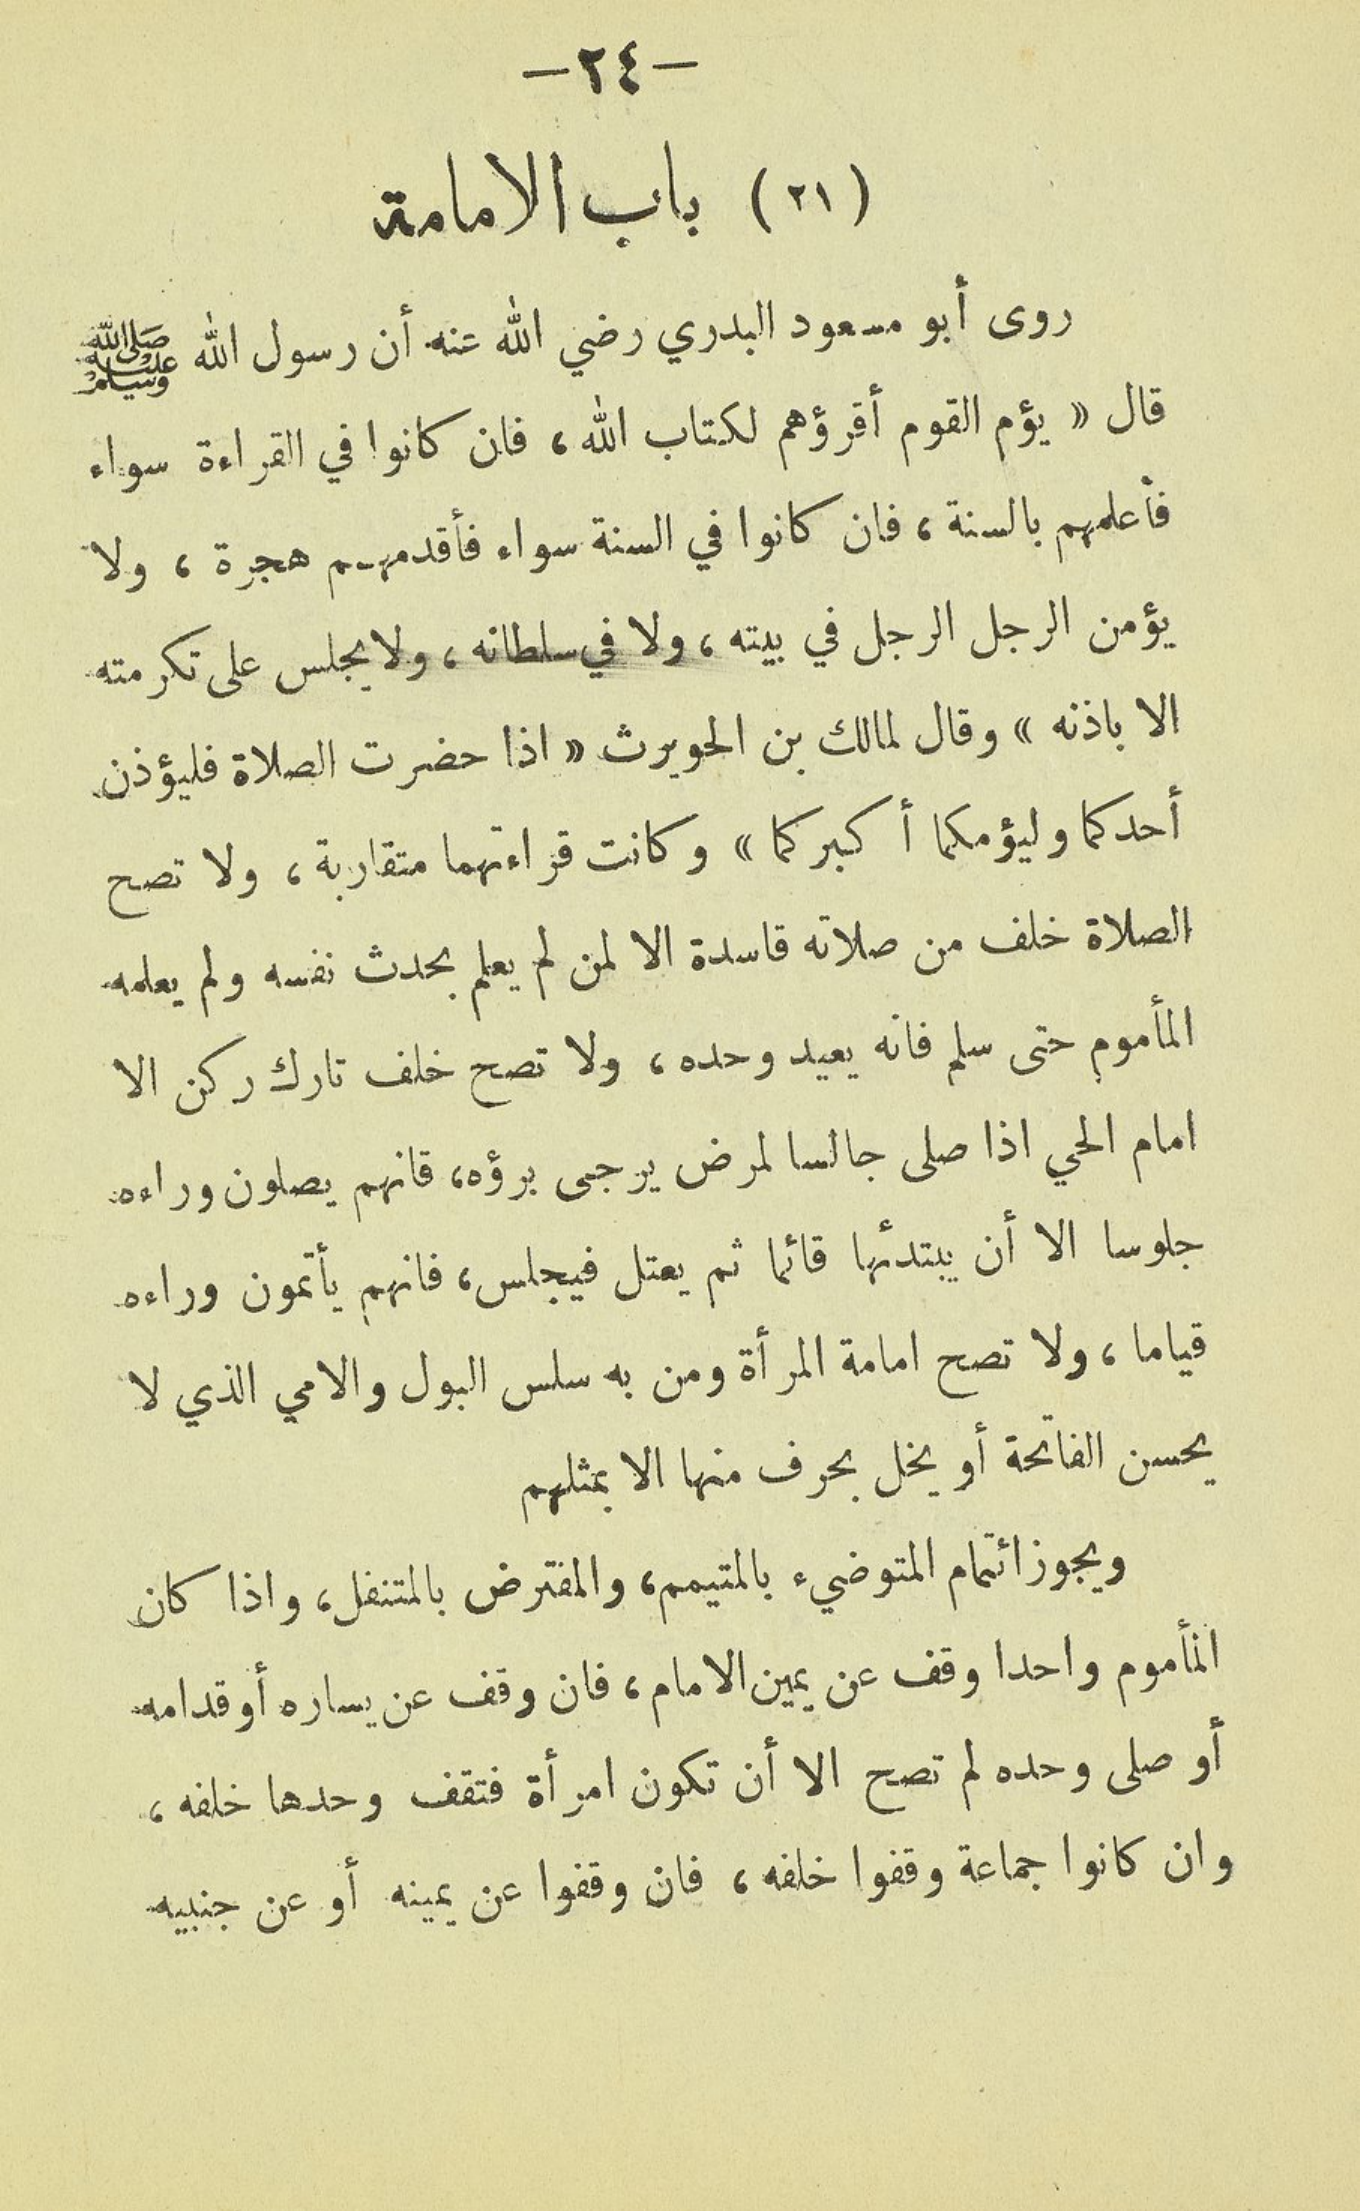 -٢٤-
(٢١) باب الامامة
روى أبو مسعود البدري رضي الله عنه أن رسول الله ﷺ
قال « يؤم القوم أقرؤهم لكتاب الله ، فان كانوا في القراءة سواء
فأعلمهم بالسنة ، فان كانوا في السنة سواء فأقدمهم هجرة ، ولا
يؤمن الرجل الرجل في بيته ، ولا في سلطانه ، ولا يجلس على تكرمته
الا باذنه » وقال لمالك بن الحويرث « اذا حضرت الصلاة فليؤذن
أحدكما وليؤمكما أكبركما » وكانت قراءتهما متقاربة ، ولا تصح
الصلاة خلف من صلاته فاسدة الا لمن لم يعلم بحدث نفسه ولم يعلمه
المأموم حتى سلم فانه يعيد وحده ، ولا تصح خلف تارك ركن الا
امام الحي اذا صلى جالسا لمرض يرجى برؤه ، فانهم يصلون وراءه
جلوسا الا أن يبتدئها قائما ثم يعتل فيجلس ، فانهم يأتمون وراءه
قياما ، ولا تصح امامة المرأة ومن به سلس البول والامي الذي لا
يحسن الفاتحة أو يخل بحرف منها الا بمثلهم
ويجوز ائتمام المتوضيء بالمتيمم ، والمفترض بالمتنفل ، واذا كان
المأموم واحدا وقف عن يمين الامام ، فان وقف عن يساره أو قدامه
أو صلى وحده لم تصح الا أن تكون امرأة فتقف وحدها خلفه ،
وان كانوا جماعة وقفوا خلفه ، فان وقفوا عن يمينه أو عن جنبيه